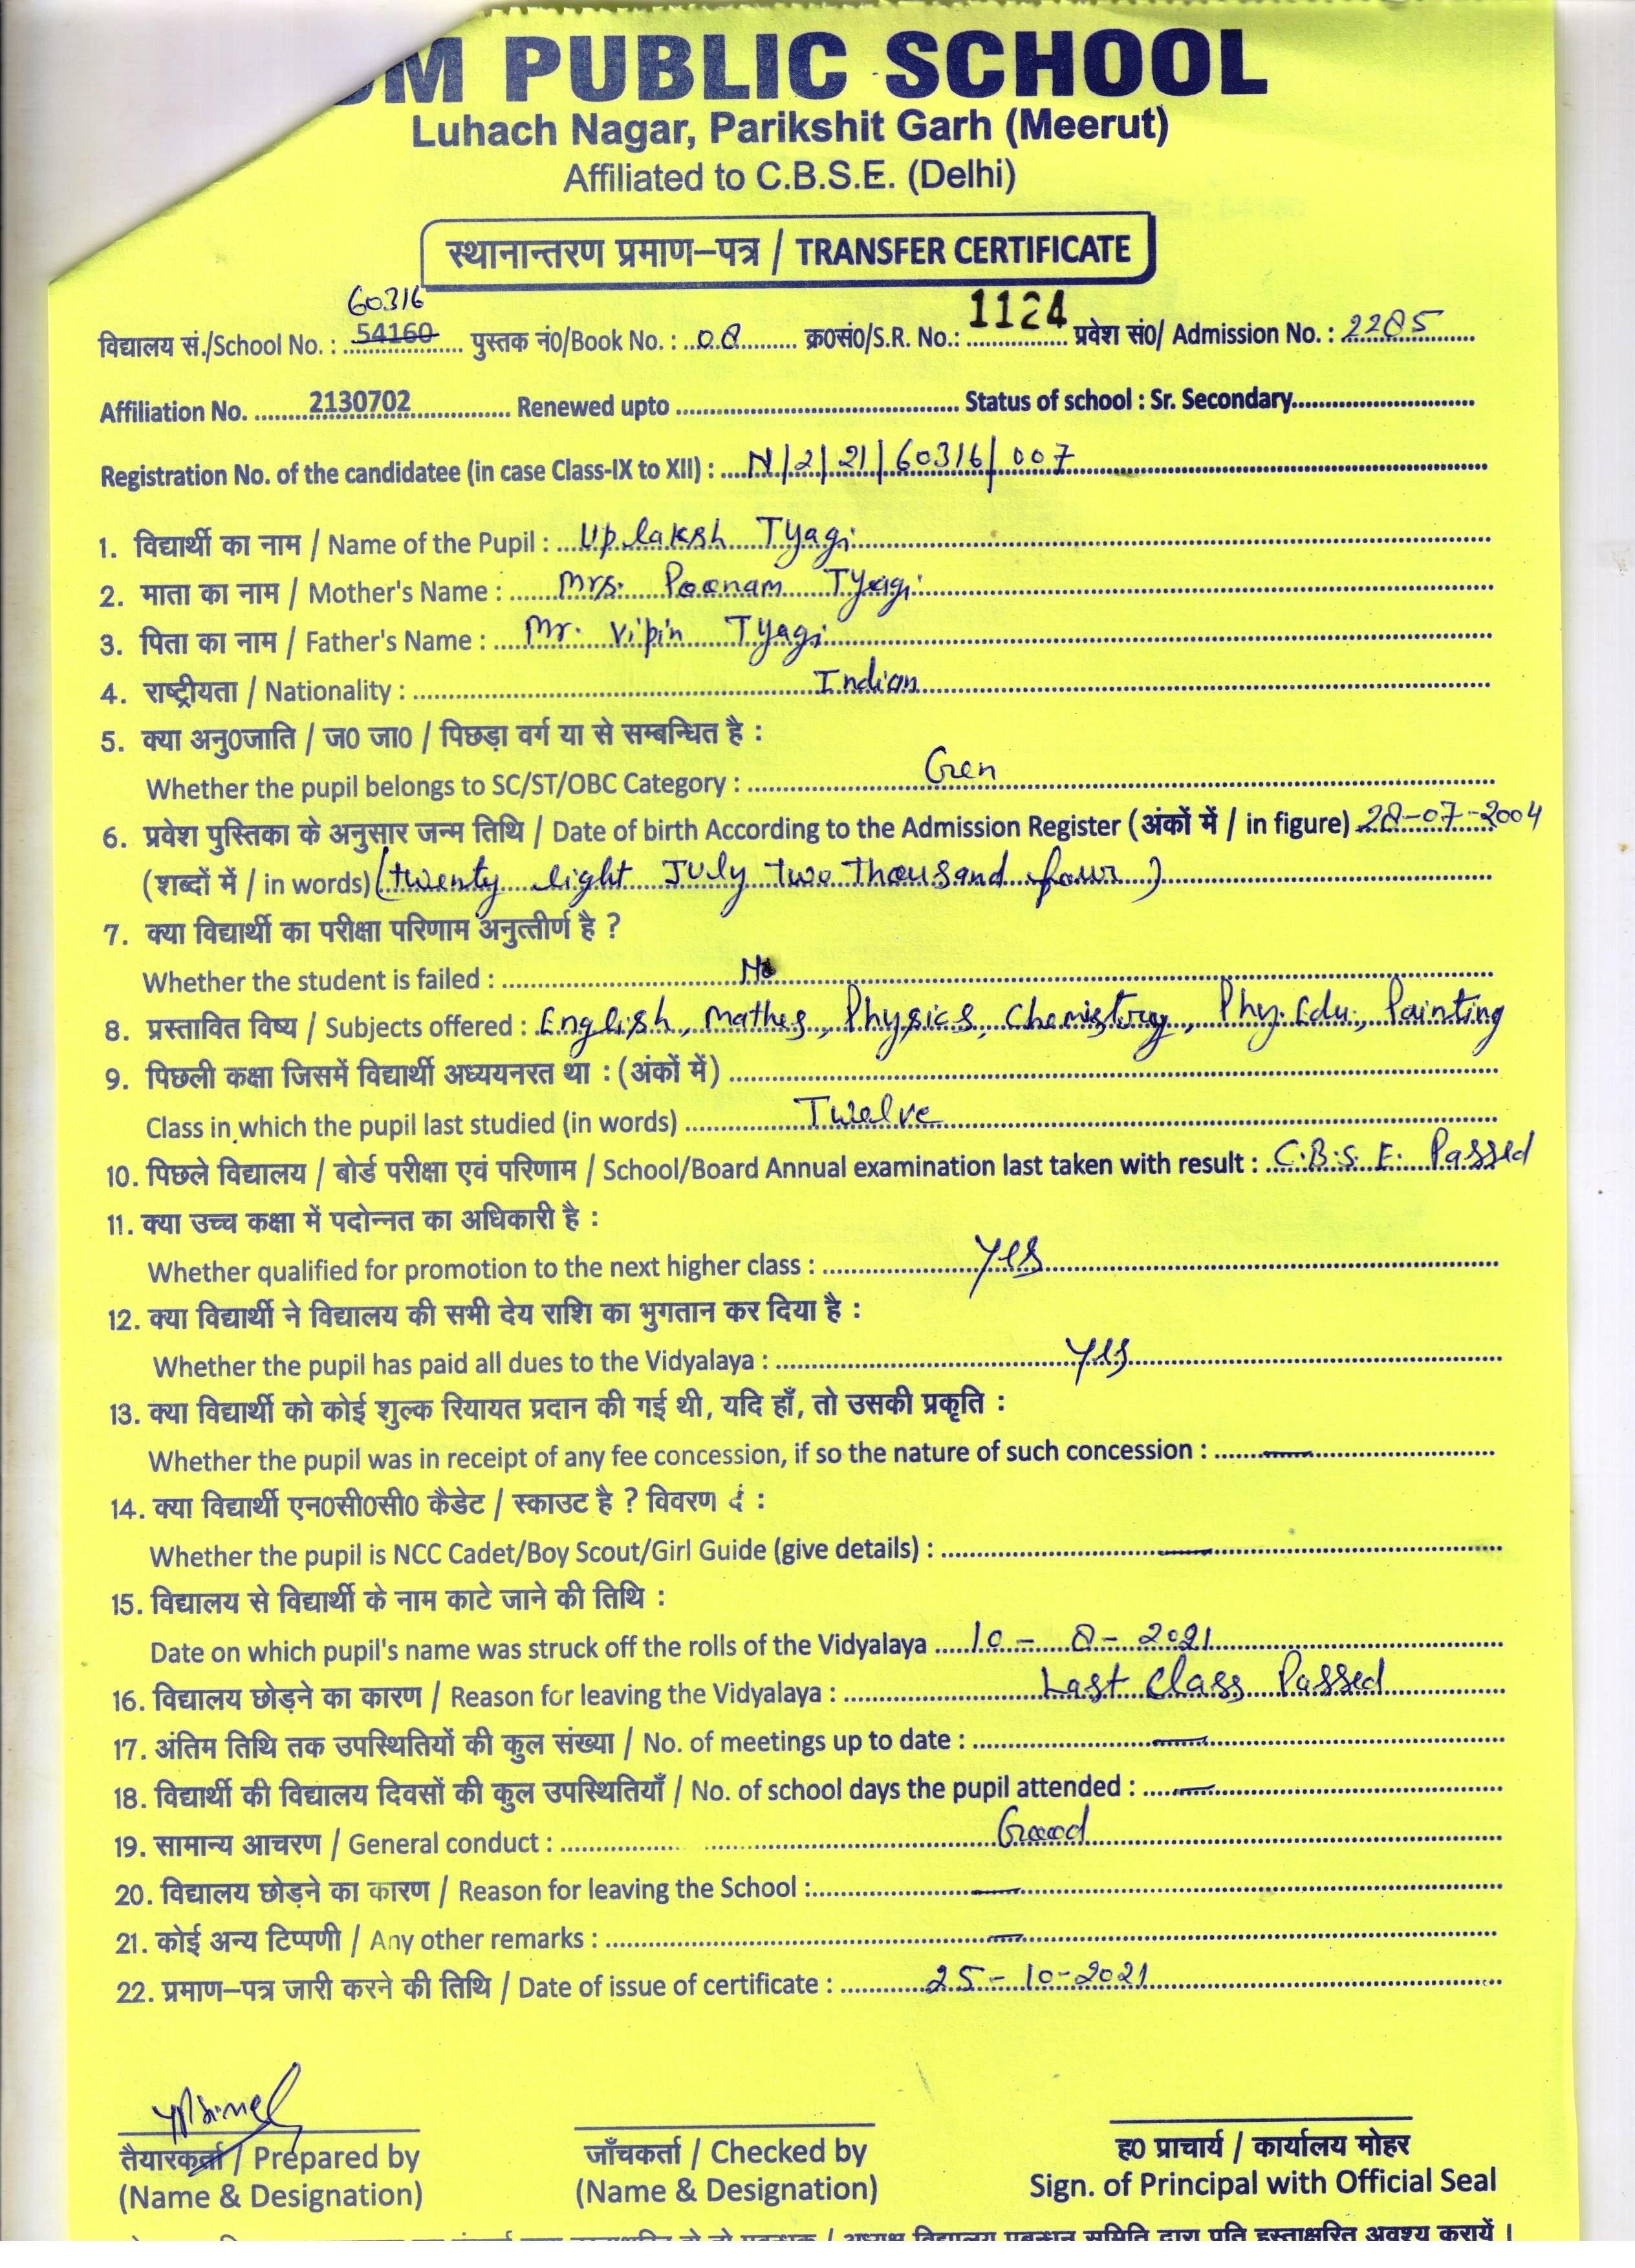 M PUBLIC SCHOOL
Luhach Nagar, Parikshit Garh (Meerut)
Affiliated to C.B.S.E. (Delhi)
स्थानान्तरण प्रमाण–पत्र / TRANSFER CERTIFICATE
60316
विद्यालय सं./School No. : 54160 पुस्तक नं0/Book No. : 08 क्र0सं0/S.R. No.: 1124 प्रवेश सं0/ Admission No. : 2285
Affiliation No. 2130702 Renewed upto Status of school : Sr. Secondary
Registration No. of the candidatee (in case Class-IX to XII) : N/2/21/60316/007
1. विद्यार्थी का नाम / Name of the Pupil : Uplaksh Tyagi
2. माता का नाम / Mother's Name : Mrs. Poonam Tyagi
3. पिता का नाम / Father's Name : Mr. Vipin Tyagi
4. राष्ट्रीयता / Nationality : Indian
5. क्या अनु0जाति / ज0 जा0 / पिछड़ा वर्ग या से सम्बन्धित है :
Whether the pupil belongs to SC/ST/OBC Category : Gen
6. प्रवेश पुस्तिका के अनुसार जन्म तिथि / Date of birth According to the Admission Register (अंकों में / in figure) 28-07-2004
(शब्दों में / in words) (twenty eight July two Thousand four)
7. क्या विद्यार्थी का परीक्षा परिणाम अनुत्तीर्ण है ?
Whether the student is failed : No
8. प्रस्तावित विष्य / Subjects offered : English, Mathes, Physics, Chemistry, Phy. Edu., Painting
9. पिछली कक्षा जिसमें विद्यार्थी अध्ययनरत था : (अंकों में)
Class in which the pupil last studied (in words) Twelve
10. पिछले विद्यालय / बोर्ड परीक्षा एवं परिणाम / School/Board Annual examination last taken with result : C.B.S.E. Passed
11. क्या उच्च कक्षा में पदोन्नत का अधिकारी है :
Whether qualified for promotion to the next higher class : Yes
12. क्या विद्यार्थी ने विद्यालय की सभी देय राशि का भुगतान कर दिया है :
Whether the pupil has paid all dues to the Vidyalaya : Yes
13. क्या विद्यार्थी को कोई शुल्क रियायत प्रदान की गई थी, यदि हाँ, तो उसकी प्रकृति :
Whether the pupil was in receipt of any fee concession, if so the nature of such concession : —
14. क्या विद्यार्थी एन0सी0सी0 कैडेट / स्काउट है ? विवरण दें :
Whether the pupil is NCC Cadet/Boy Scout/Girl Guide (give details) : —
15. विद्यालय से विद्यार्थी के नाम काटे जाने की तिथि :
Date on which pupil's name was struck off the rolls of the Vidyalaya 10-8-2021
16. विद्यालय छोड़ने का कारण / Reason for leaving the Vidyalaya : Last Class Passed
17. अंतिम तिथि तक उपस्थितियों की कुल संख्या / No. of meetings up to date : —
18. विद्यार्थी की विद्यालय दिवसों की कुल उपस्थितियाँ / No. of school days the pupil attended : —
19. सामान्य आचरण / General conduct : Good
20. विद्यालय छोड़ने का कारण / Reason for leaving the School : —
21. कोई अन्य टिप्पणी / Any other remarks : —
22. प्रमाण–पत्र जारी करने की तिथि / Date of issue of certificate : 25-10-2021
तैयारकर्ता / Prepared by जाँचकर्ता / Checked by ह0 प्राचार्य / कार्यालय मोहर
(Name & Designation) (Name & Designation) Sign. of Principal with Official Seal
अध्यक्ष विद्यालय प्रबन्धन समिति द्वारा प्रति हस्ताक्षरित अवश्य करायें ।